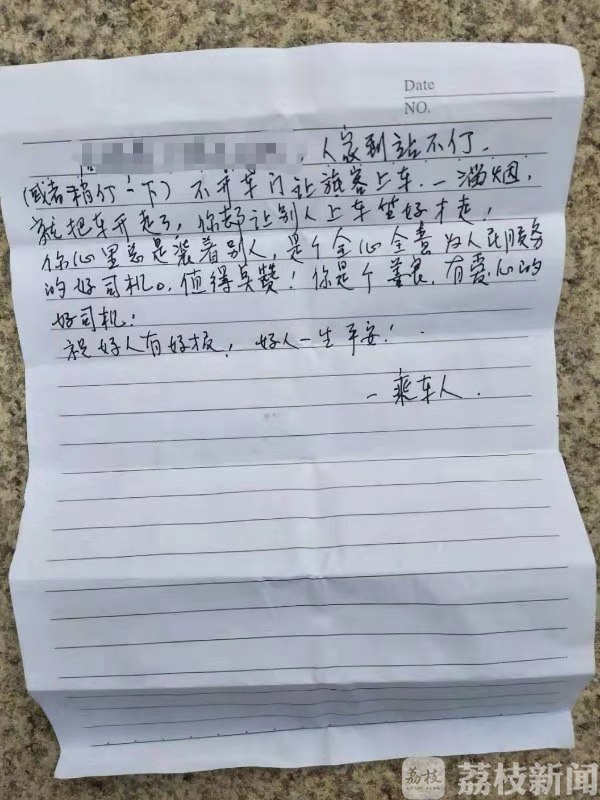 Date
NO.
，人家到站不停，
（或者稍停一下）不开车门让旅客上车，一溜烟，
就把车开走了，你都让别人上车坐好才走，
你心里总是装着别人，是个全心全意为人民服务
的好司机。值得点赞！你是个善良，有爱心的
好司机！
祝好人有好报！好人一生平安！
一乘车人．
荔枝
荔枝新闻